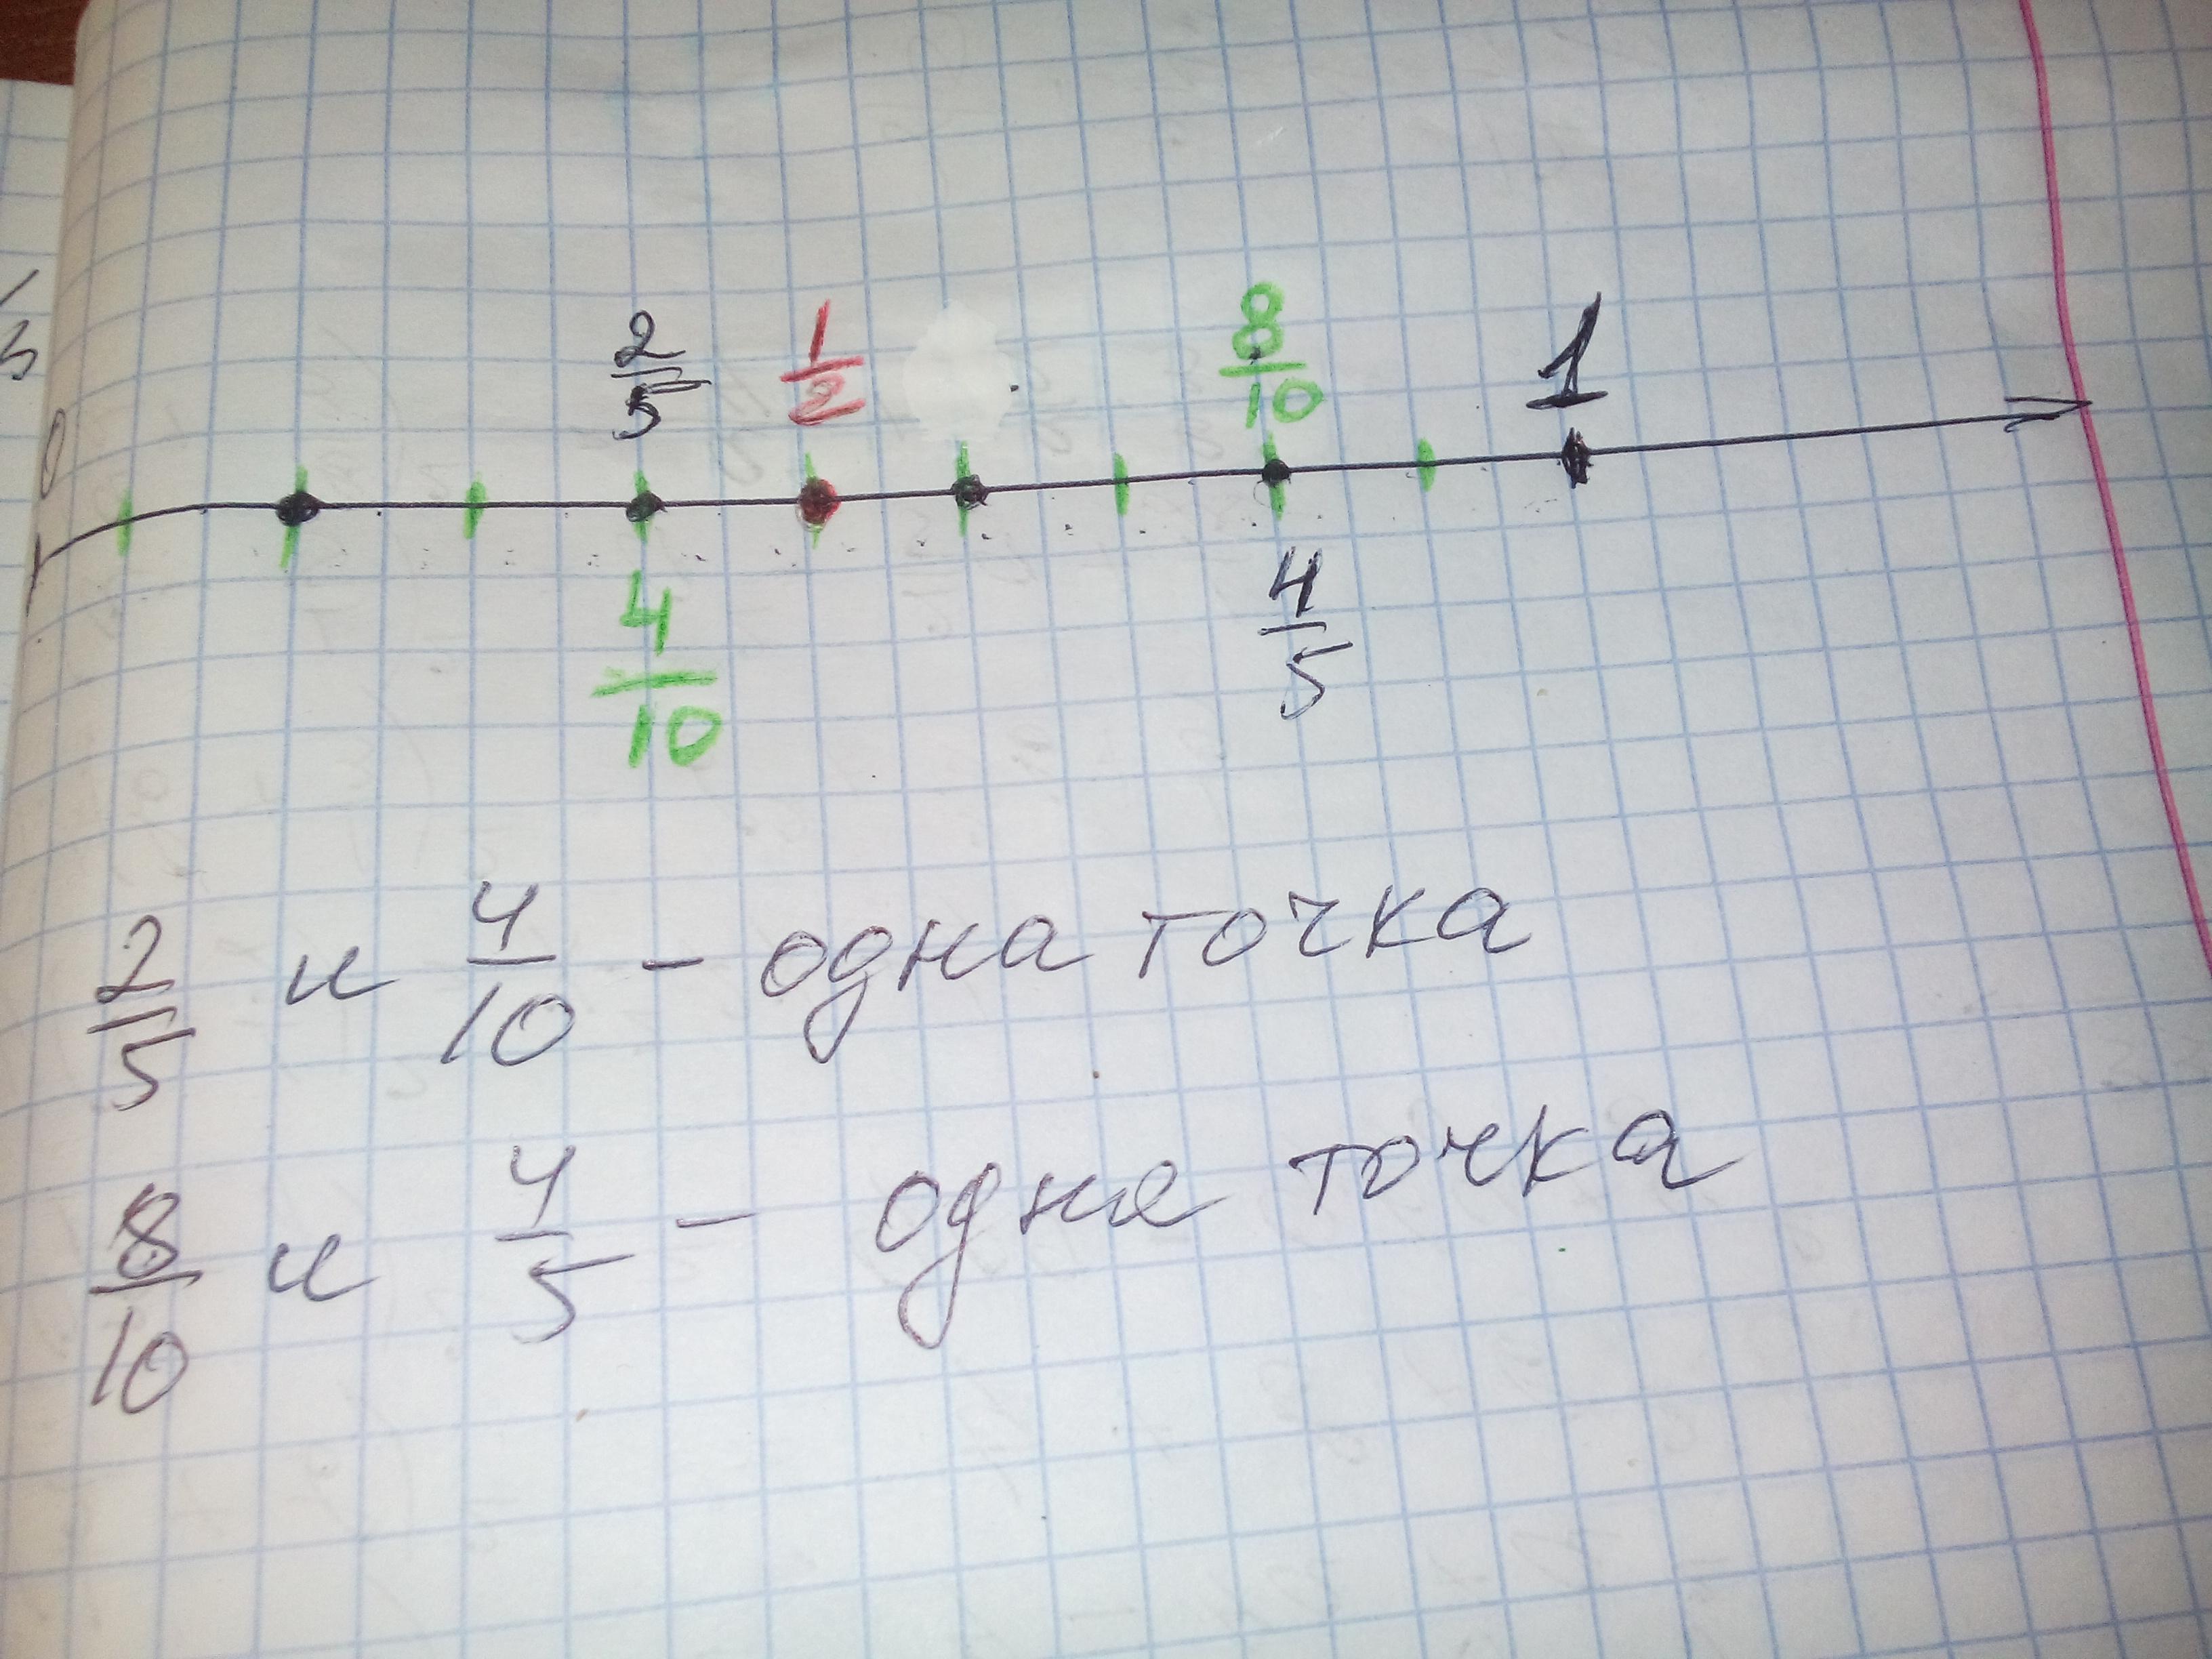 0
2/5 1/2 8/10 1
4/10 4/5
2/5 и 4/10 - одна точка
8/10 и 4/5 - одна точка